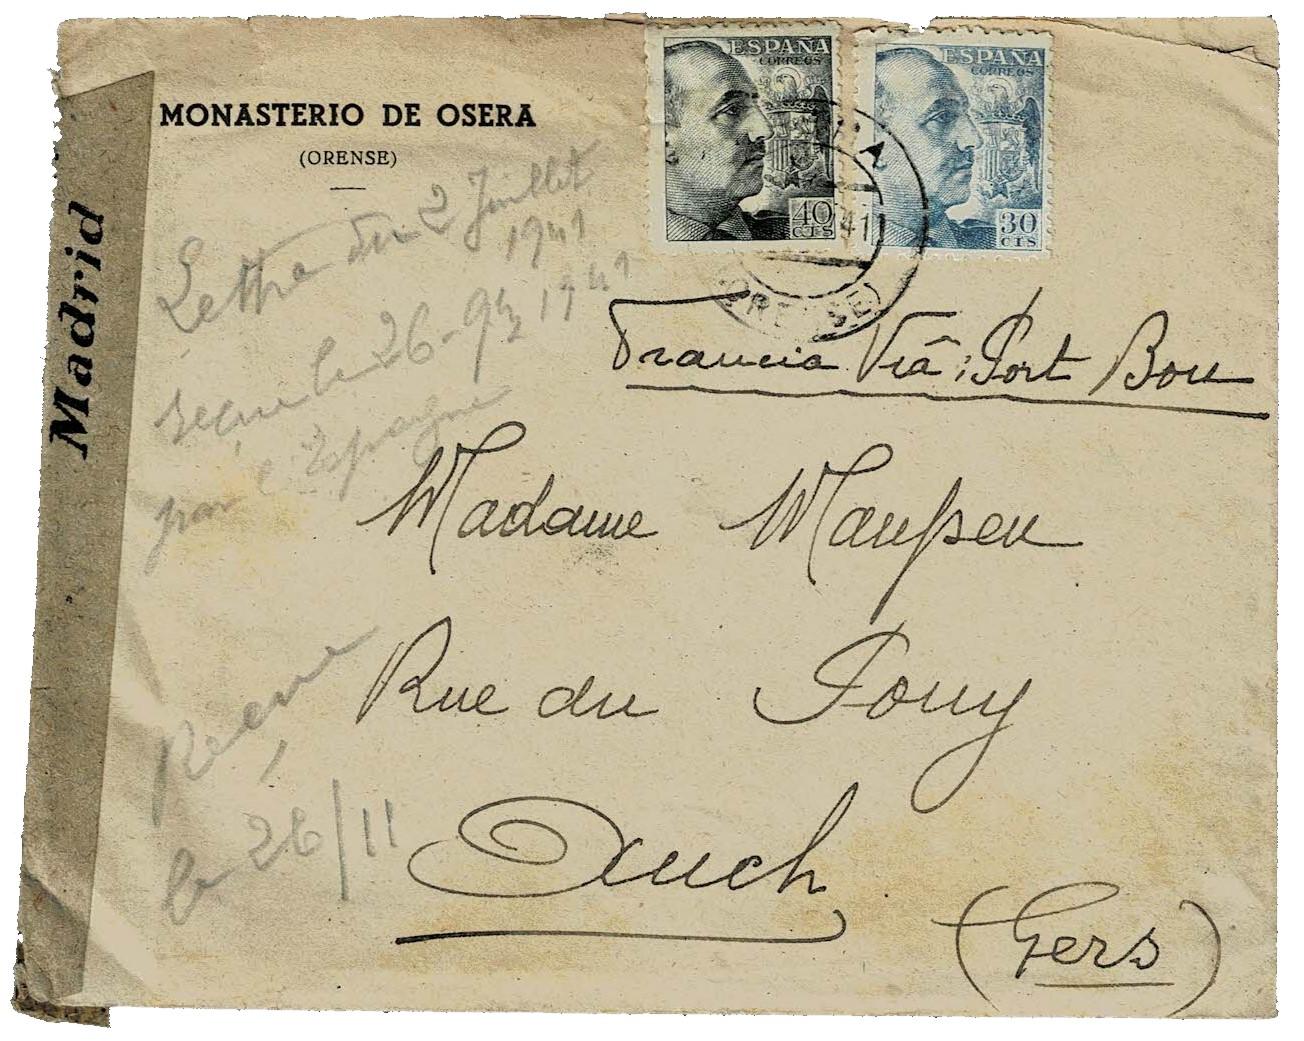 MONASTERIO DE OSERA
(ORENSE)
ESPAÑA
CORREOS
40
CTS
ESPAÑA
CORREOS
30
CTS
41
(ORENSE)
Madrid
Lettre du 2 Juillet
1941
le 26-9bre 1941
par l'Espagne
Francia Viâ: Port Bou
Madame Maupeu
Rue du Pouy
Auch
(Gers)
le 26/11